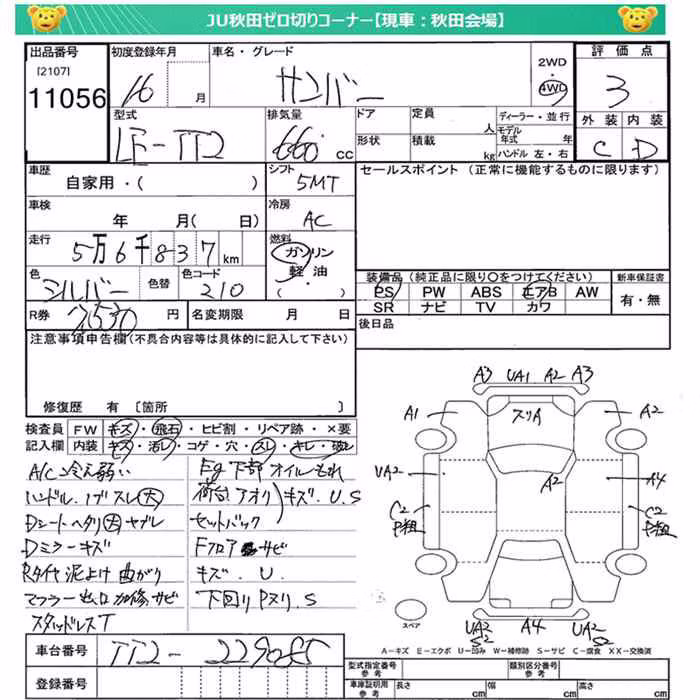 JU秋田ゼロ切りコーナー【現車：秋田会場】
出品番号 初度登録年月 車名・グレード 評価点
[2107]
11056
16 月 サンバー 2WD 4WD 3
型式 排気量 ドア 定員 人 ディーラー・並行 外装 内装
LE-TT2 660 cc 形状 積載 kg モデル年式 年 ハンドル 左・右 C D
車歴 自家用・( ) シフト 5MT
セールスポイント (正常に機能するものに限ります)
車検 年 月( 日) 冷房 AC
走行 5万6千837km 燃料 ガソリン 軽油 ( ・ )
色 シルバー 色替 色コード 210
装備品 (純正品に限り〇をつけてください) 新車保証書
PS PW ABS エアB AW 有・無
SR ナビ TV カワ
R券 円 名変期限 月 日
後日品
注意事項申告欄(不具合内容等は具体的に記入して下さい)
修復歴 有 [箇所 ]
検査員記入欄 FW キズ・飛石・ヒビ割・リペア跡・×要
内装 キズ・汚レ・コゲ・穴・スレ・キレ・破レ
A/C冷え弱い
ハンドル.ハゲ スレ(大)
Dシートヘタリ(大)ヤブレ
Dミラーキズ
Rタイヤ泥よけ曲がり
マフラー出口加修.サビ
スタッドレスT
Eg下部オイルもれ
荷台 アオリ)キズ.U.S
セットバック
Fフロアーサビ
キズ.U.
下回りPヌリ.S
A3 UA1 A2 A3
A1 スリA A2
UA2 A2 A4
C2 P粗 C2 P粗
スペア
UA2 S2 A4 UA2 S2
A－キズ E－エクボ U－凹み W－補修跡 S－サビ C－腐食 XX－交換済
車台番号 TT2-
登録番号
型式指定番号 参考 類別区分番号 参考
車庫証明用 参考 長さ cm 幅 cm 高さ cm